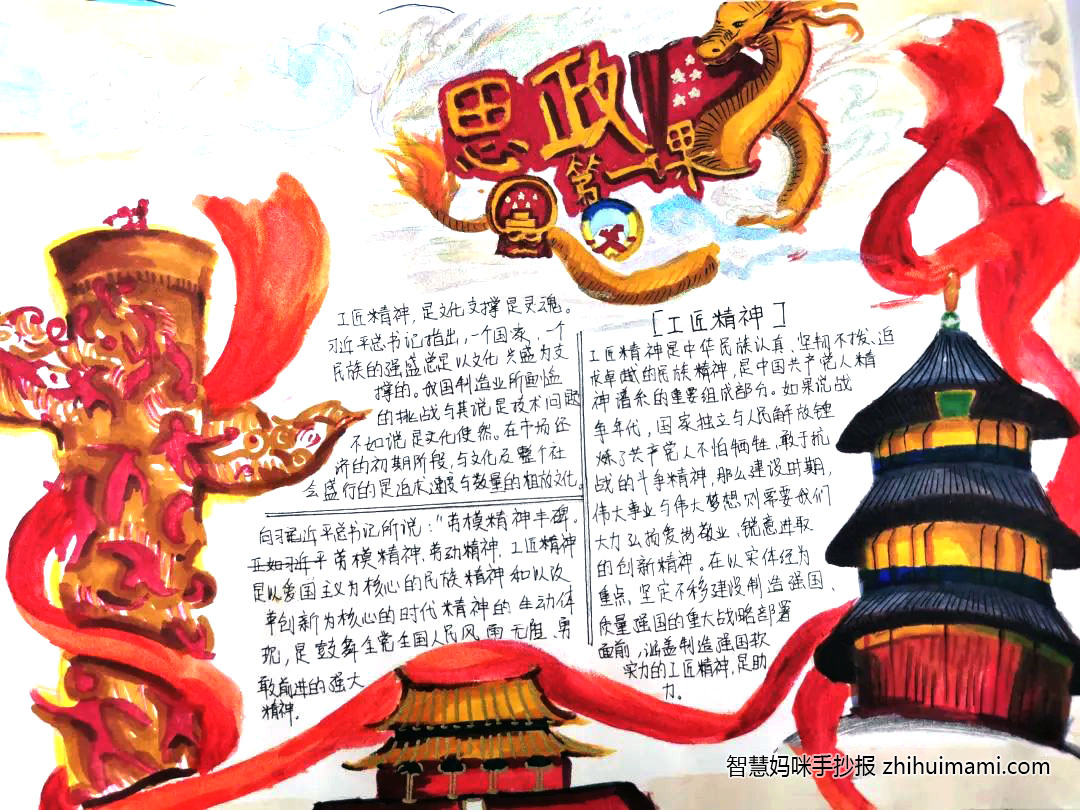 思政
第一课
工匠精神，是文化支撑是灵魂。
习近平总书记指出，一个国家、一个
民族的强盛总是以文化兴盛为支
撑的。我国制造业所面临
的挑战与其说是技术问题
不如说是文化使然。在市场经
济的初期阶段，与文化及整个社
会盛行的是追求速度与数量的粗放文化。
近平总书记所说："劳模精神丰碑。
正如习近平劳模精神，劳动精神，工匠精神
是以爱国主义为核心的民族精神和以改
革创新为核心的时代精神的生动体
现，是鼓舞全党全国人民风雨无阻、勇
敢前进的强大
精神。
[工匠精神]
工匠精神是中华民族认真、坚韧不拔、追
求卓越的民族精神，是中国共产党人精
神谱系的重要组成部分。如果说战
争年代，国家独立与人民解放锤
炼了共产党人不怕牺牲、敢于抗
战的斗争精神，那么建设时期，
伟大事业与伟大梦想则需要我们
大力弘扬爱岗敬业、锐意进取
的创新精神。在以实体经为
重点，坚定不移建设制造强国、
质量强国的重大战略部署
面前，涵盖制造强国软
实力的工匠精神，是助
力。
智慧妈咪手抄报 zhihuimami.com